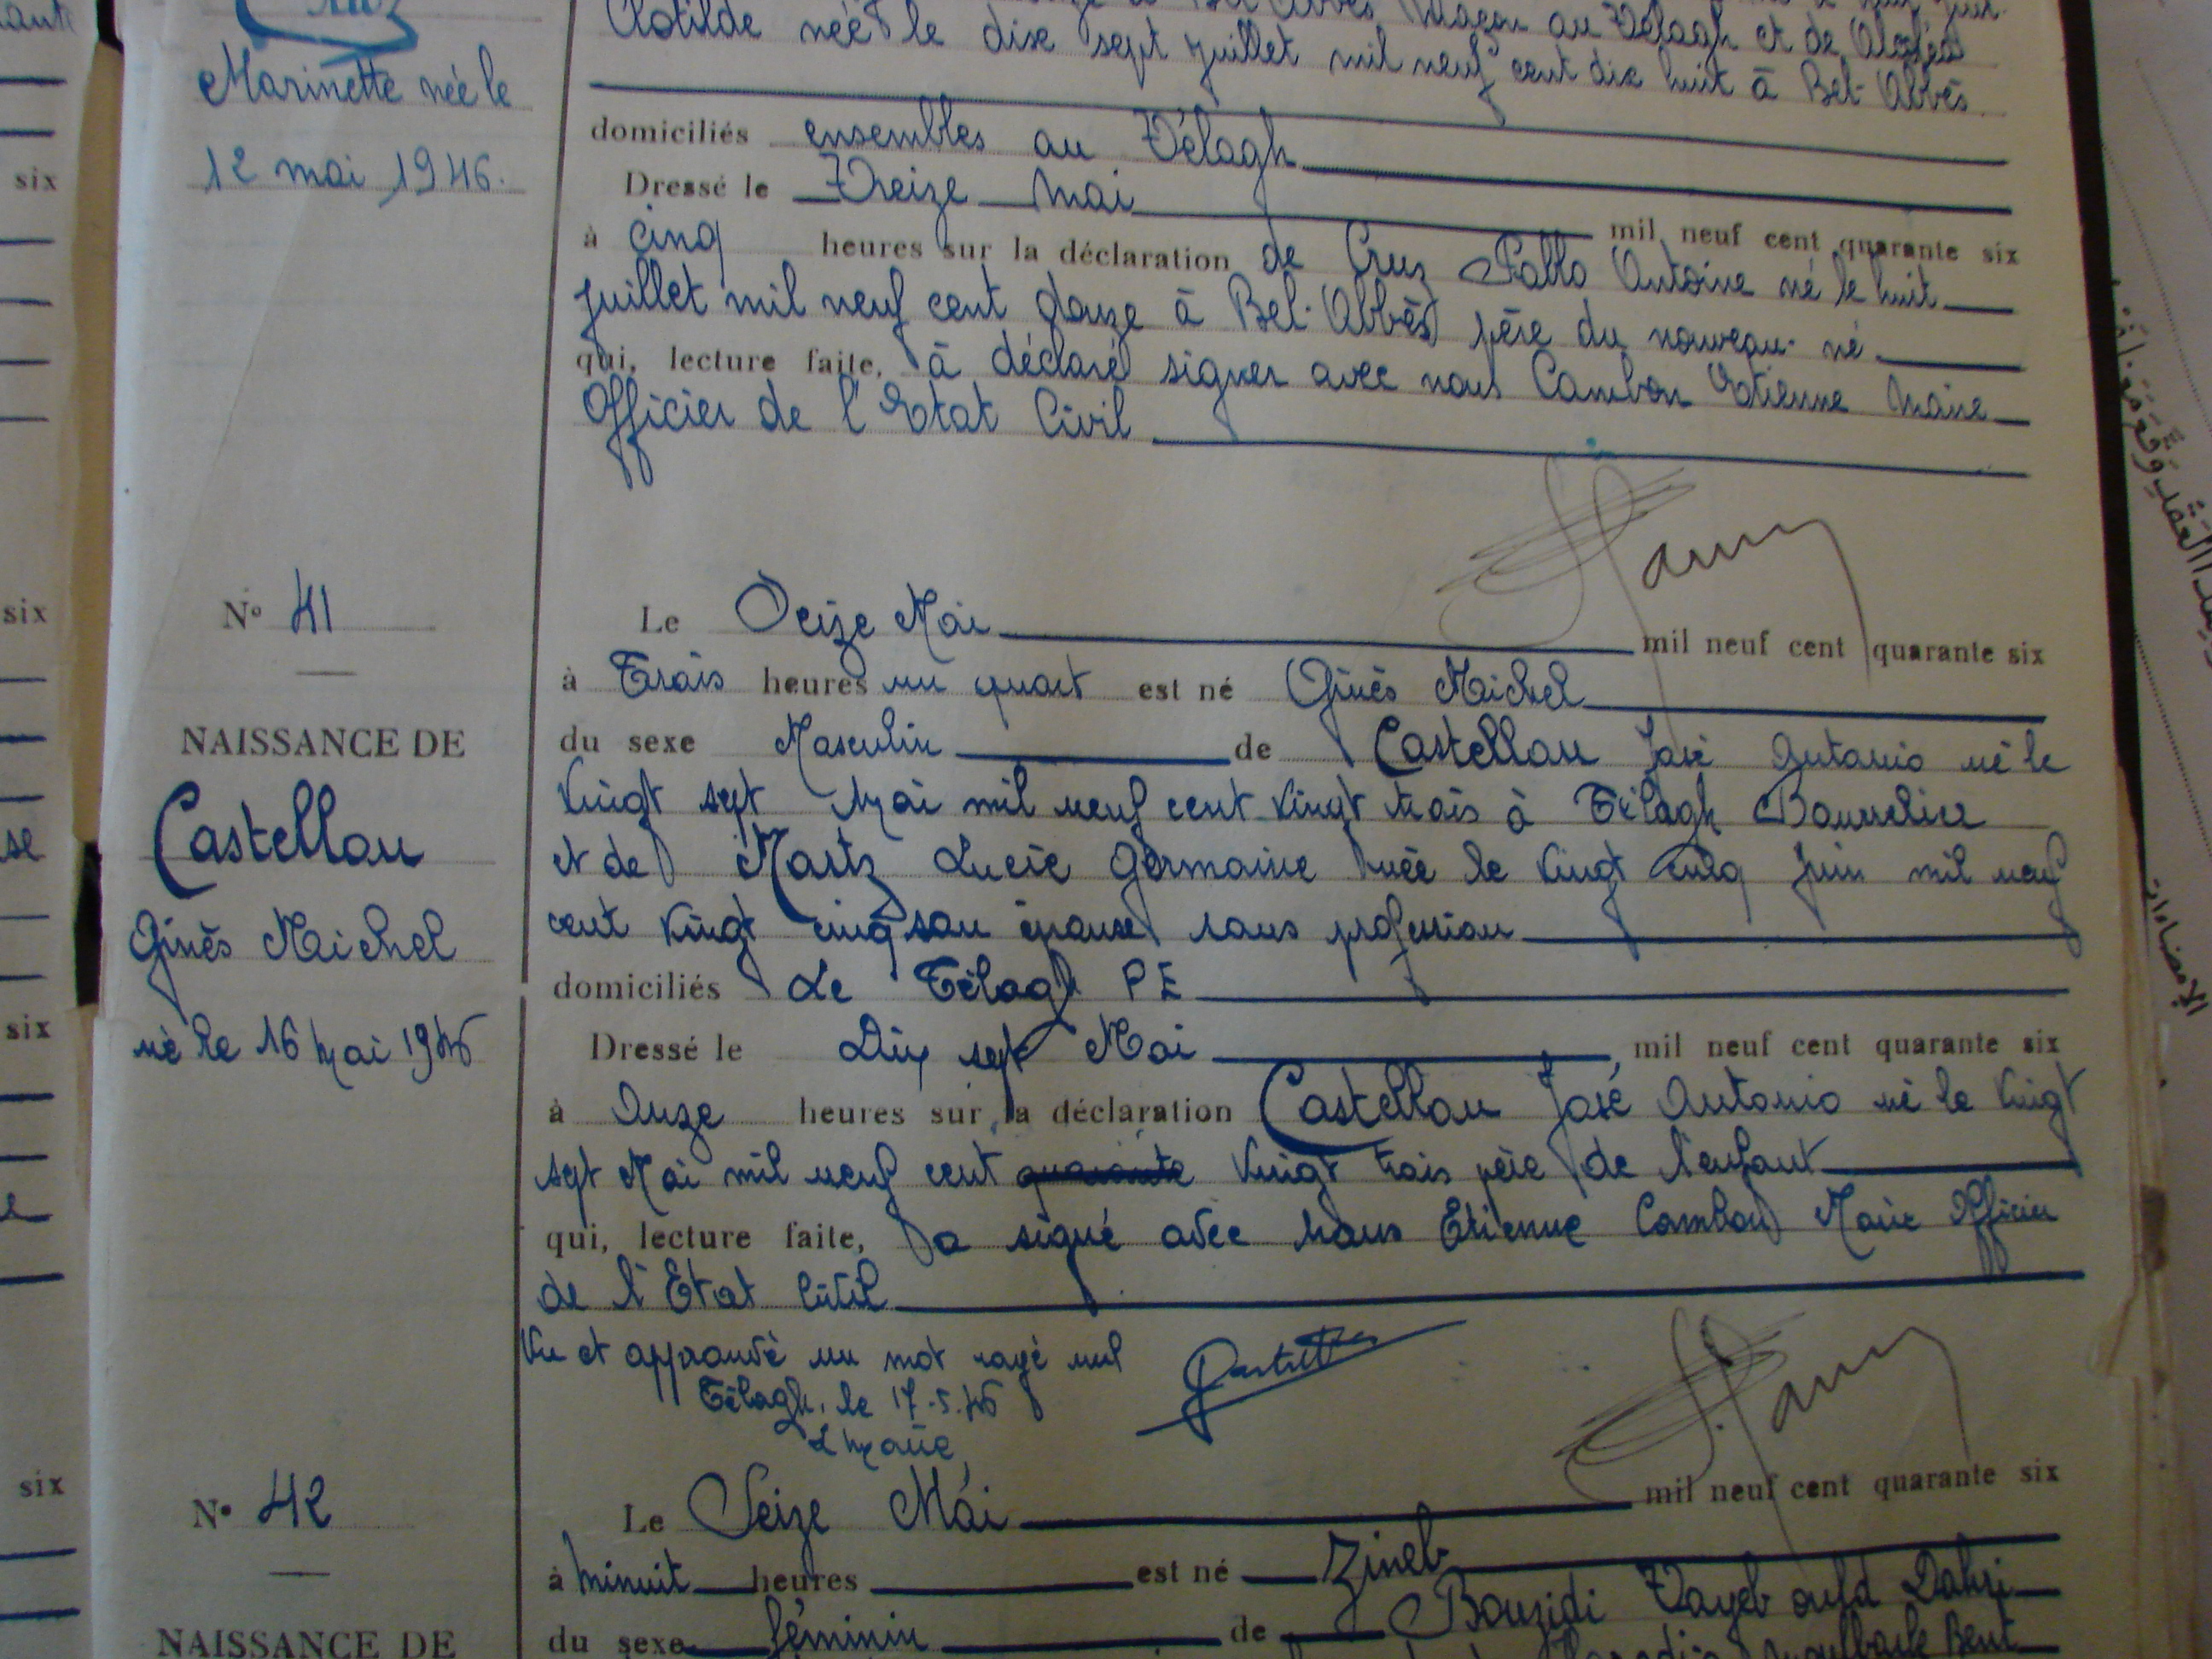 Marinette née le
12 mai 1946.
Clotilde née le dix sept juillet mil neuf cent dix huit à Bel-Abbès
domiciliés ensembles au Télagh
Dressé le Treize Mai mil neuf cent quarante six
à cinq heures sur la déclaration de Cruz Pablo Antoine né le huit
juillet mil neuf cent douze à Bel-Abbès père du nouveau-né
qui, lecture faite, à déclaré signer avec nous Cambon Etienne Maire
Officier de l'Etat Civil
N° 41
NAISSANCE DE
Castellou
Ginès Michel
né le 16 Mai 1946
Le Seize Mai mil neuf cent quarante six
à Trois heures un quart est né Ginès Michel
du sexe Masculin de Castellou José Antonio né le
Vingt sept Mai mil neuf cent vingt trois à Télagh Bourrelier
et de Martz Lucie Germaine née le vingt cinq juin mil neuf
cent vingt cinq son épouse sans profession
domiciliés Le Télagh PE
Dressé le Dix sept Mai mil neuf cent quarante six
à Onze heures sur la déclaration Castellou José Antonio né le Vingt
sept Mai mil neuf cent quarante Vingt trois père de l'enfant
qui, lecture faite, a signé avec nous Etienne Cambon Maire Officier
de l'Etat Civil
Vu et approuvé un mot rayé nul
Télagh, le 17-5-46
Le Maire
N° 42
NAISSANCE DE
Le Seize Mai mil neuf cent quarante six
à Minuit heures est né Zineb
du sexe féminin de Bouzidi Tayeb ould Dahri
six
six
six
six
الإمضاءات